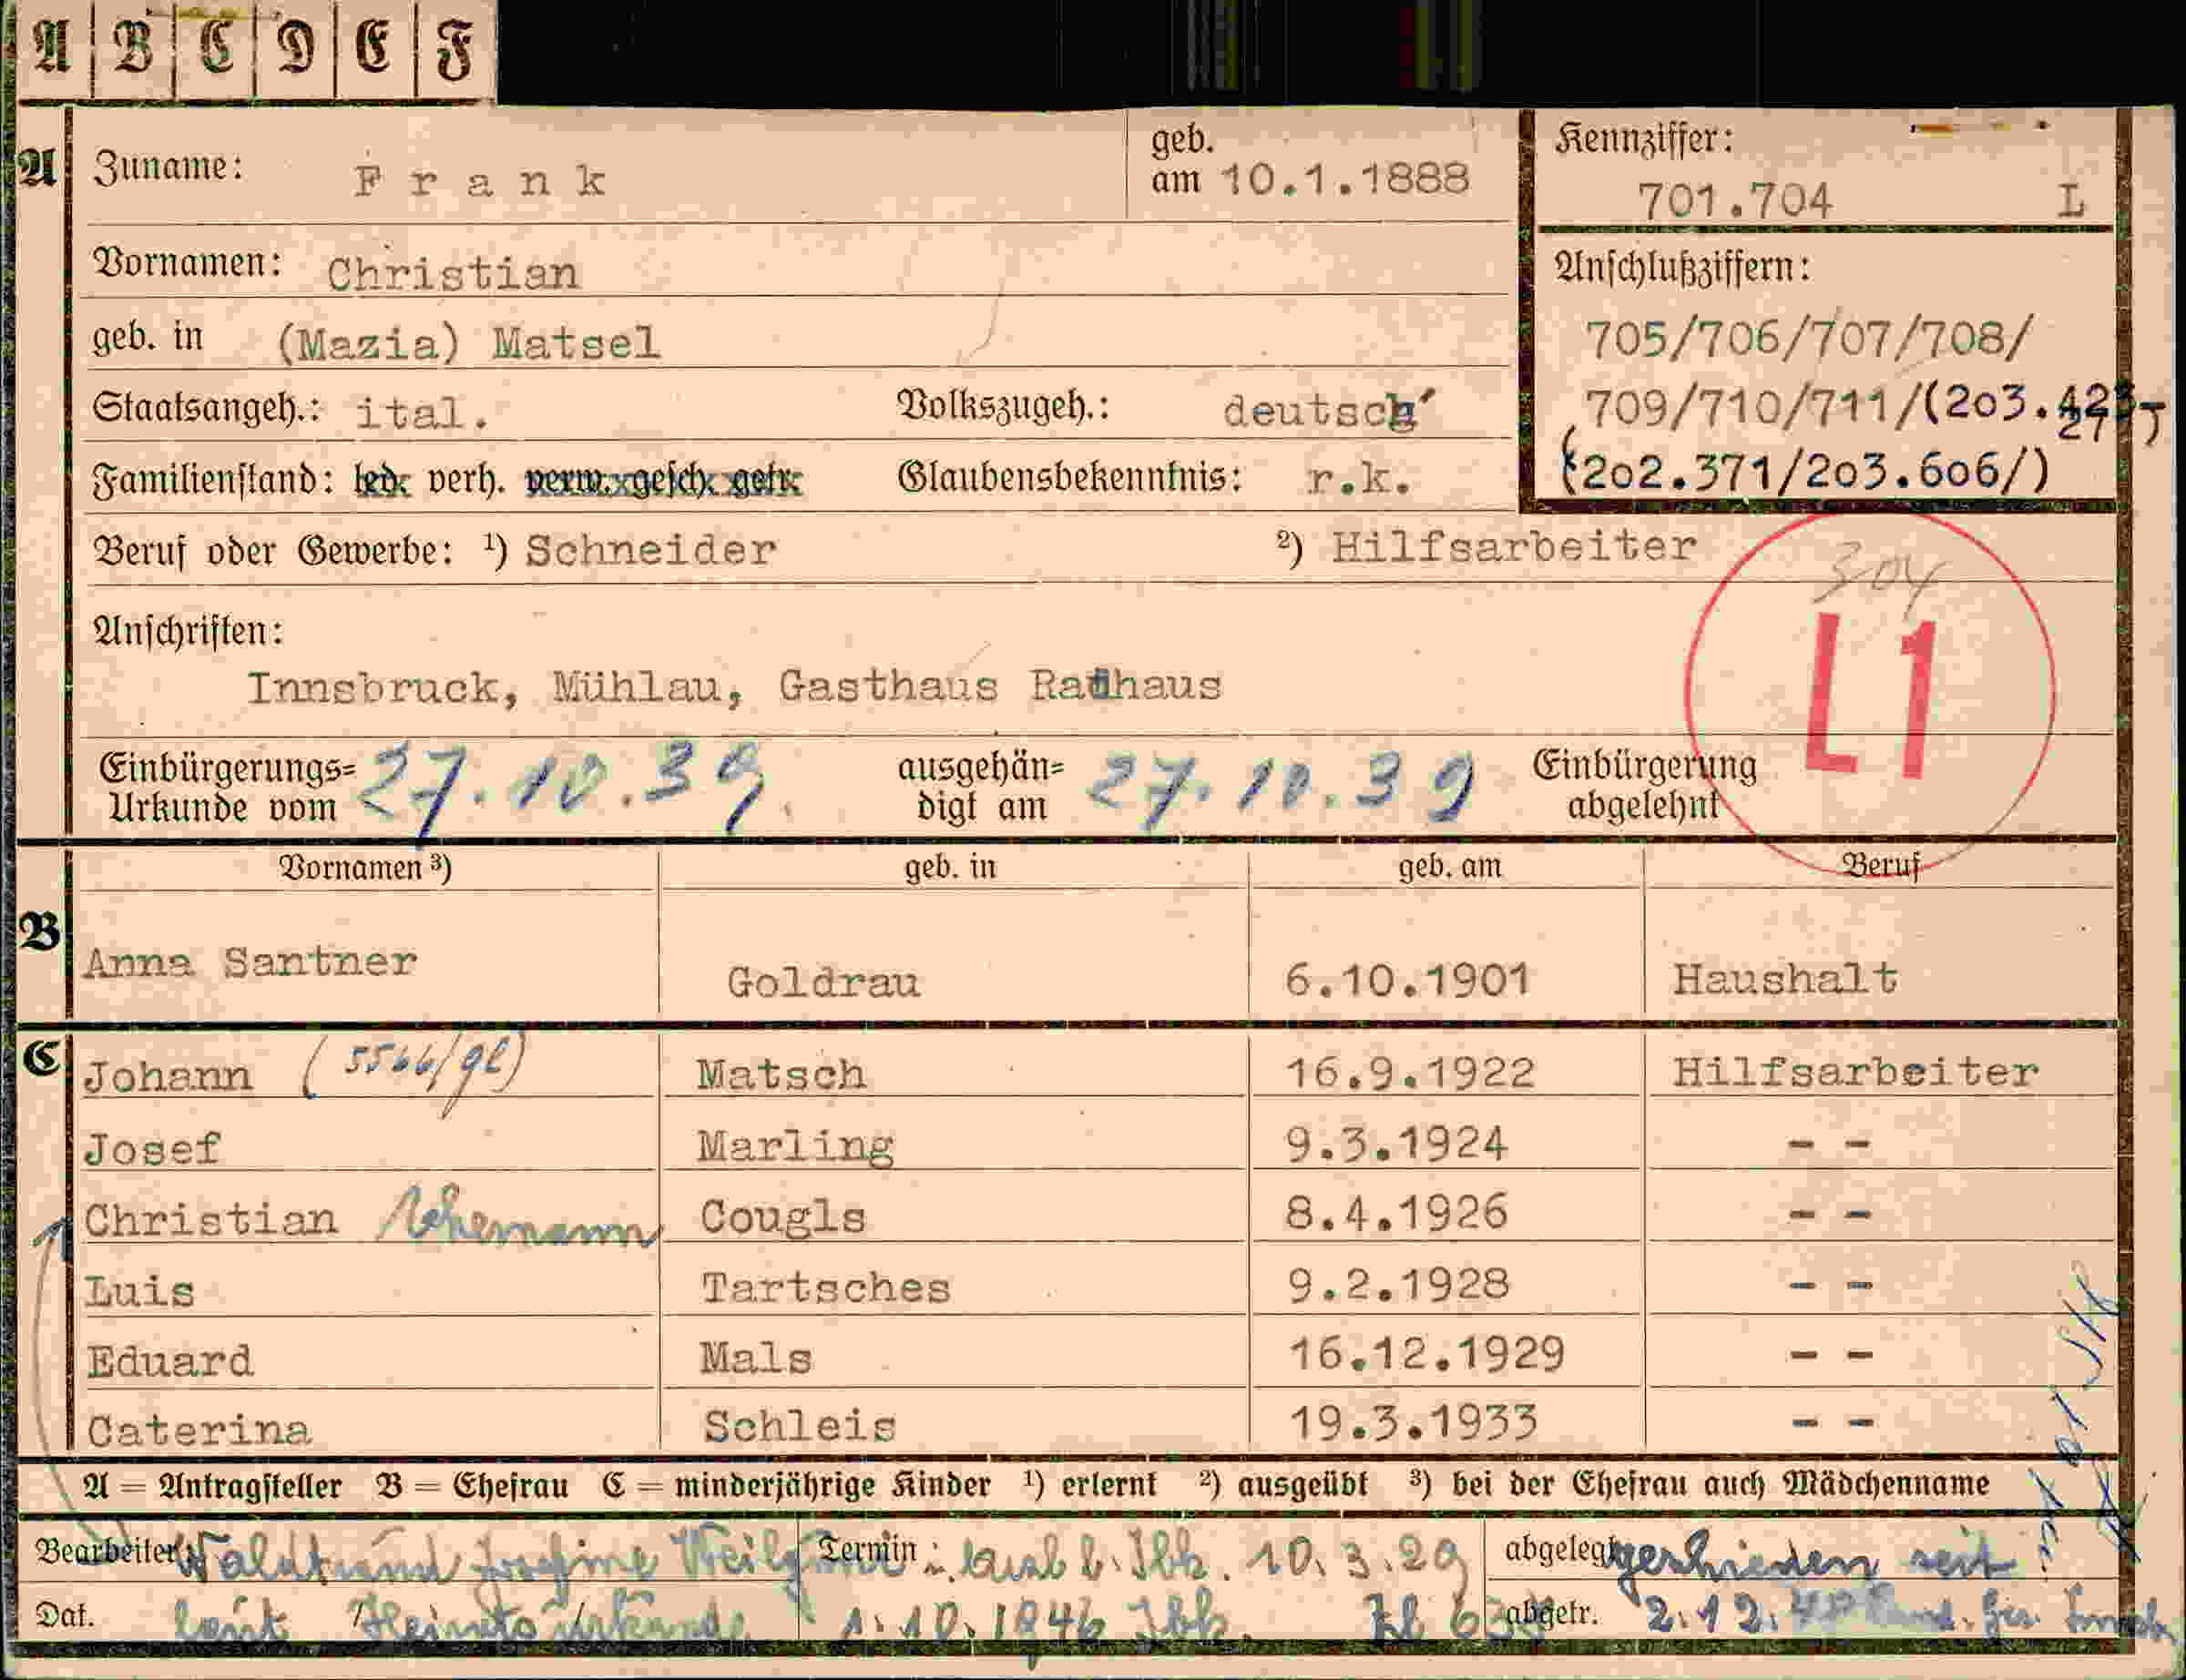 A B C D E F
A Zuname: Frank geb. am 10.1.1888
Kennziffer: 701.704 L
Vornamen: Christian
Anschlußziffern:
705/706/707/708/
709/710/711/(203.
(202.371/203.606/)
geb. in (Mazia) Matsel
Staatsangeh.: ital. Volkszugeh.: deutsch
Familienstand: led. verh. verw. gesch. getr. Glaubensbekenntnis: r.k.
Beruf oder Gewerbe: ¹) Schneider ²) Hilfsarbeiter
304
L1
Anschriften:
Innsbruck, Mühlau, Gasthaus Radhaus
Einbürgerungs=Urkunde vom 27.10.39. ausgehän=digt am 27.10.39 Einbürgerung abgelehnt
Vornamen ³) geb. in geb. am Beruf
B Anna Santner Goldrau 6.10.1901 Haushalt
C Johann (5566/gl) Matsch 16.9.1922 Hilfsarbeiter
Josef Marling 9.3.1924 - -
Christian Cougls 8.4.1926 - -
Luis Tartsches 9.2.1928 - -
Eduard Mals 16.12.1929 - -
Caterina Schleis 19.3.1933 - -
A = Antragsteller B = Ehefrau C = minderjährige Kinder ¹) erlernt ²) ausgeübt ³) bei der Ehefrau auch Mädchenname
Bearbeiter: Termin: 10.3.29 abgelegt geschieden seit
Dat. laut 1.10.1946 Ibk. abgetr. 2.12.